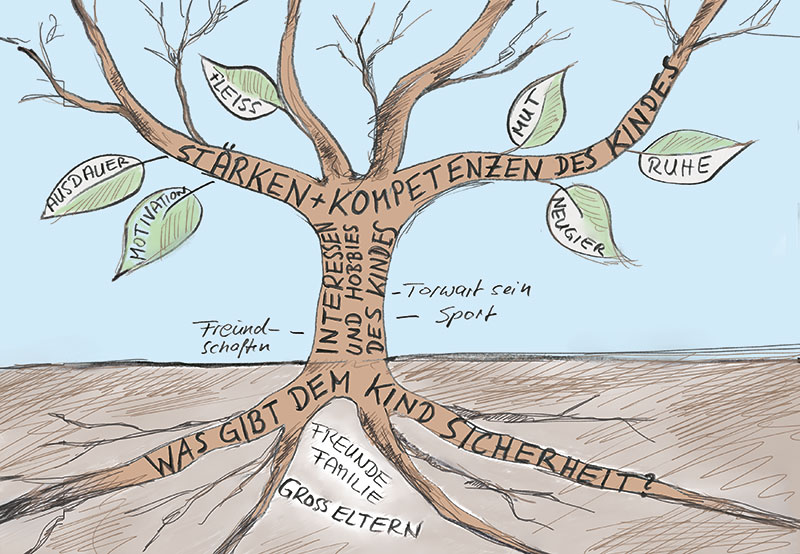 FLEISS
MUT
AUSDAUER
MOTIVATION
RUHE
NEUGIER
STÄRKEN + KOMPETENZEN DES KINDES
INTERESSEN
UND HOBBIES
DES KINDES
Freund-
schaften
Torwart sein
Sport
WAS GIBT DEM KIND SICHERHEIT?
FREUNDE
FAMILIE
GROSSELTERN